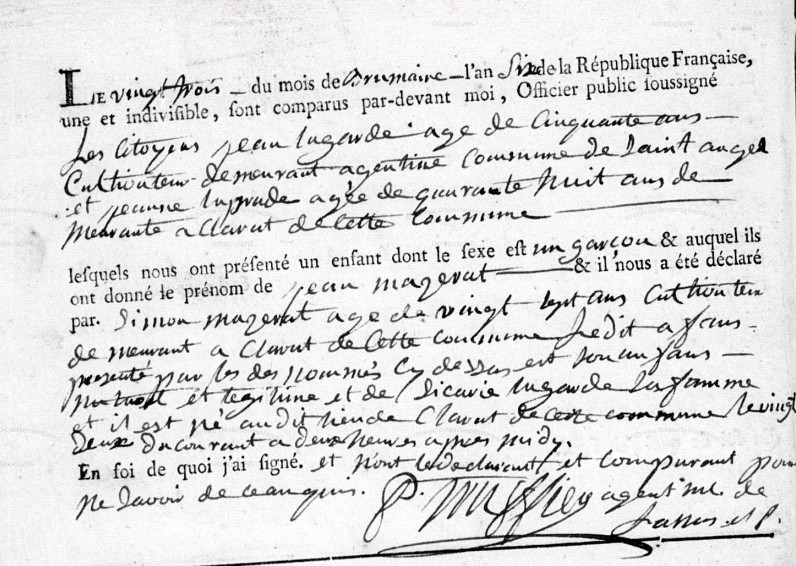 LE vingt trois du mois de Brumaire l'an Six de la République Française,
une et indivisible, sont comparus par-devant moi, Officier public soussigné
Les Citoyens jean lagarde age de Cinquante ans
Cultivateur demeurant agentine Commune de Saint angel
et jeanne laprade agée de quarante huit ans de
meurante a Clavat de Cette Commune
lesquels nous ont présenté un enfant dont le sexe est un garçon & auquel ils
ont donné le prénom de jean mazerat & il nous a été déclaré
par. Simon mazerat age de vingt sept ans Cultivateur
de meurant a Clavat de Cette Commune Ledit anfans
presenté par les des nommés Cy dessus est son anfans
naturel et legitime et de Sicarie lagarde Sa famme
et il est né audit lieu de Clavat de Cette commune le vingt
deux du courant a deux heures apres midy.
En foi de quoi j'ai signé. et nont les declarant et comparant pour
ne Savoir de ce anquis. P. agent m. de